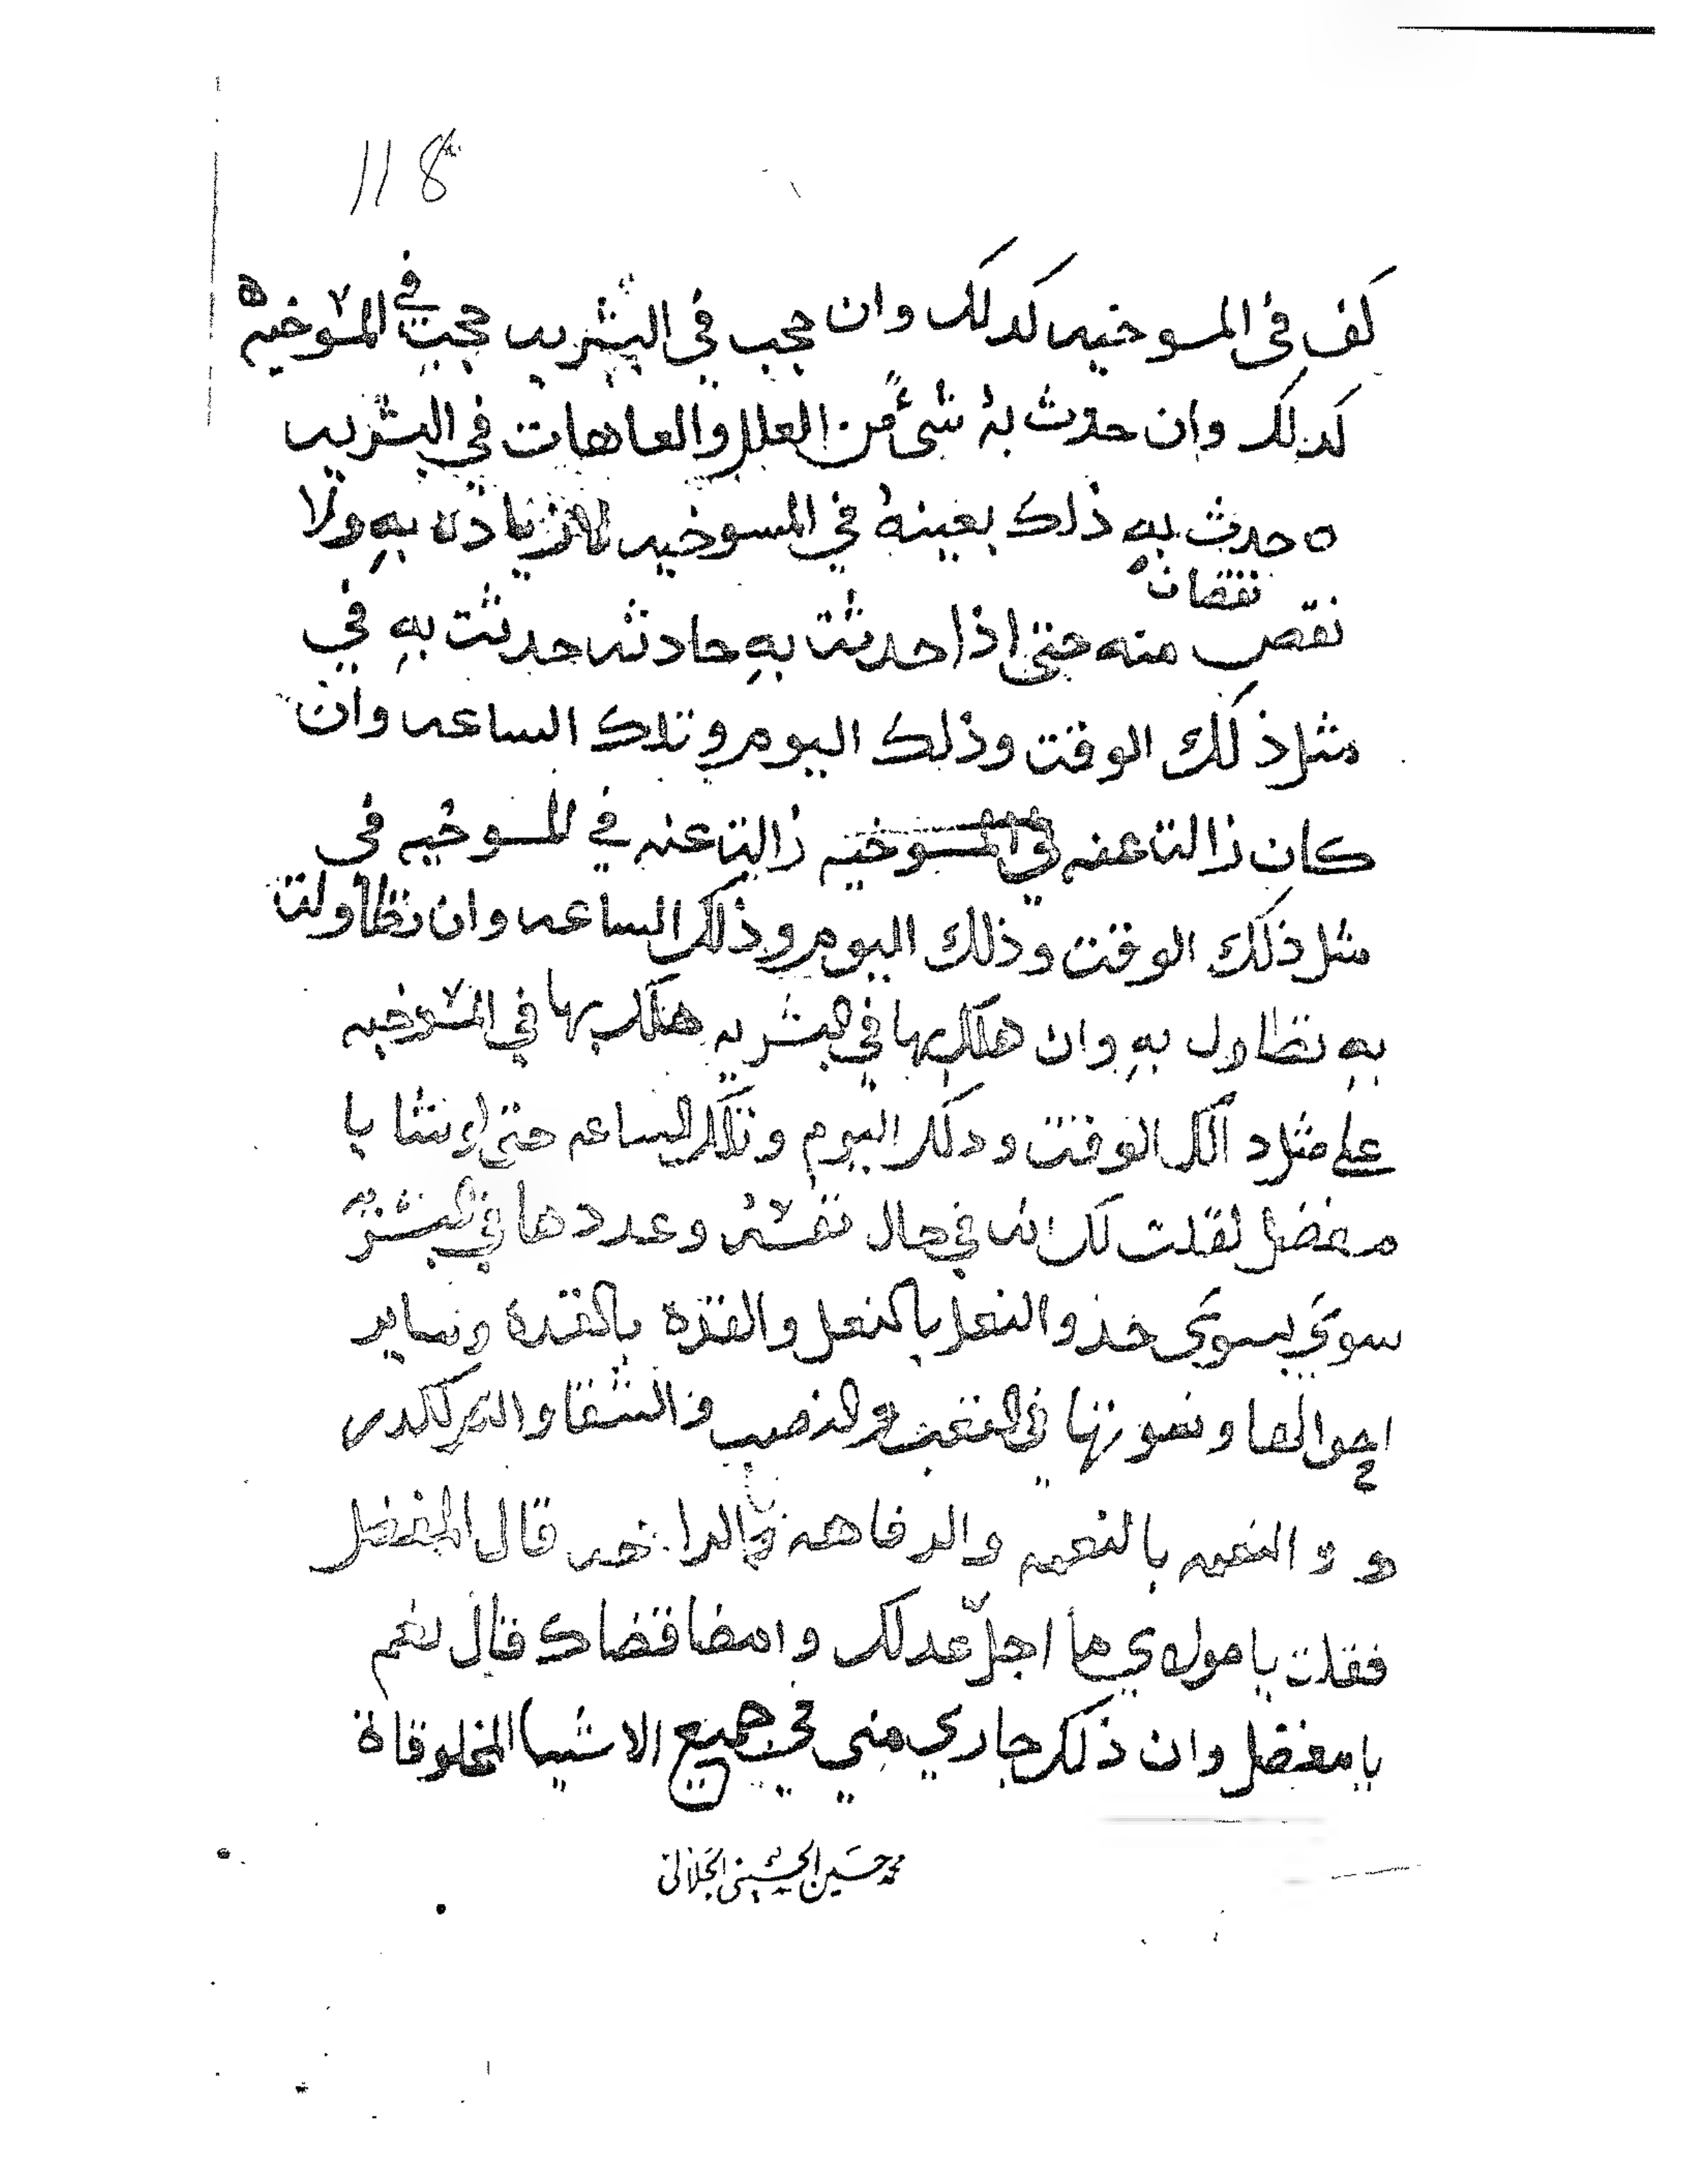 118
كف في المسوخيه كدلك وان حجب في البشريه حجب في المسوخيه
كدلك وان حدث به شيءً من العلل والعاهات في البشريه
ه حدث به ذلك بعينه في المسوخيه لا زياده به ولا
نقصان
نقص منه حتى اذا حدثت به حادثه حدثت به في
مثل ذلك الوقت وذلك اليوم وتلك الساعه وان
كان زالت عنه في المسوخيه زالت عنه في المسوخيه في
مثل ذلك الوقت وذلك اليوم وذلك الساعه وان تطاولت
به تطاول به وان هلك بها في البشريه هلك بها في المسوخيه
على مثل دالك الوقت ودلك اليوم وتلك الساعه حتى لو نشا يا
مفضل لقلت لك انه في حال نفسه وعددها في البشريه
سوي بسوي خذو النعل بالنعل والقذه بالقده وساير
احوالها و في التعب والنصب والشقا والكد
و والنعيم بالنعيم والرفاهه والراحه قال المفضل
فقلت يا مولاي ما اجل عدلك وامضا قضاك قال نعم
يا مفضل وان ذلك جاري مني في جميع الاشيا المخلوقاة
محمد حسين الحسيني الجلالي